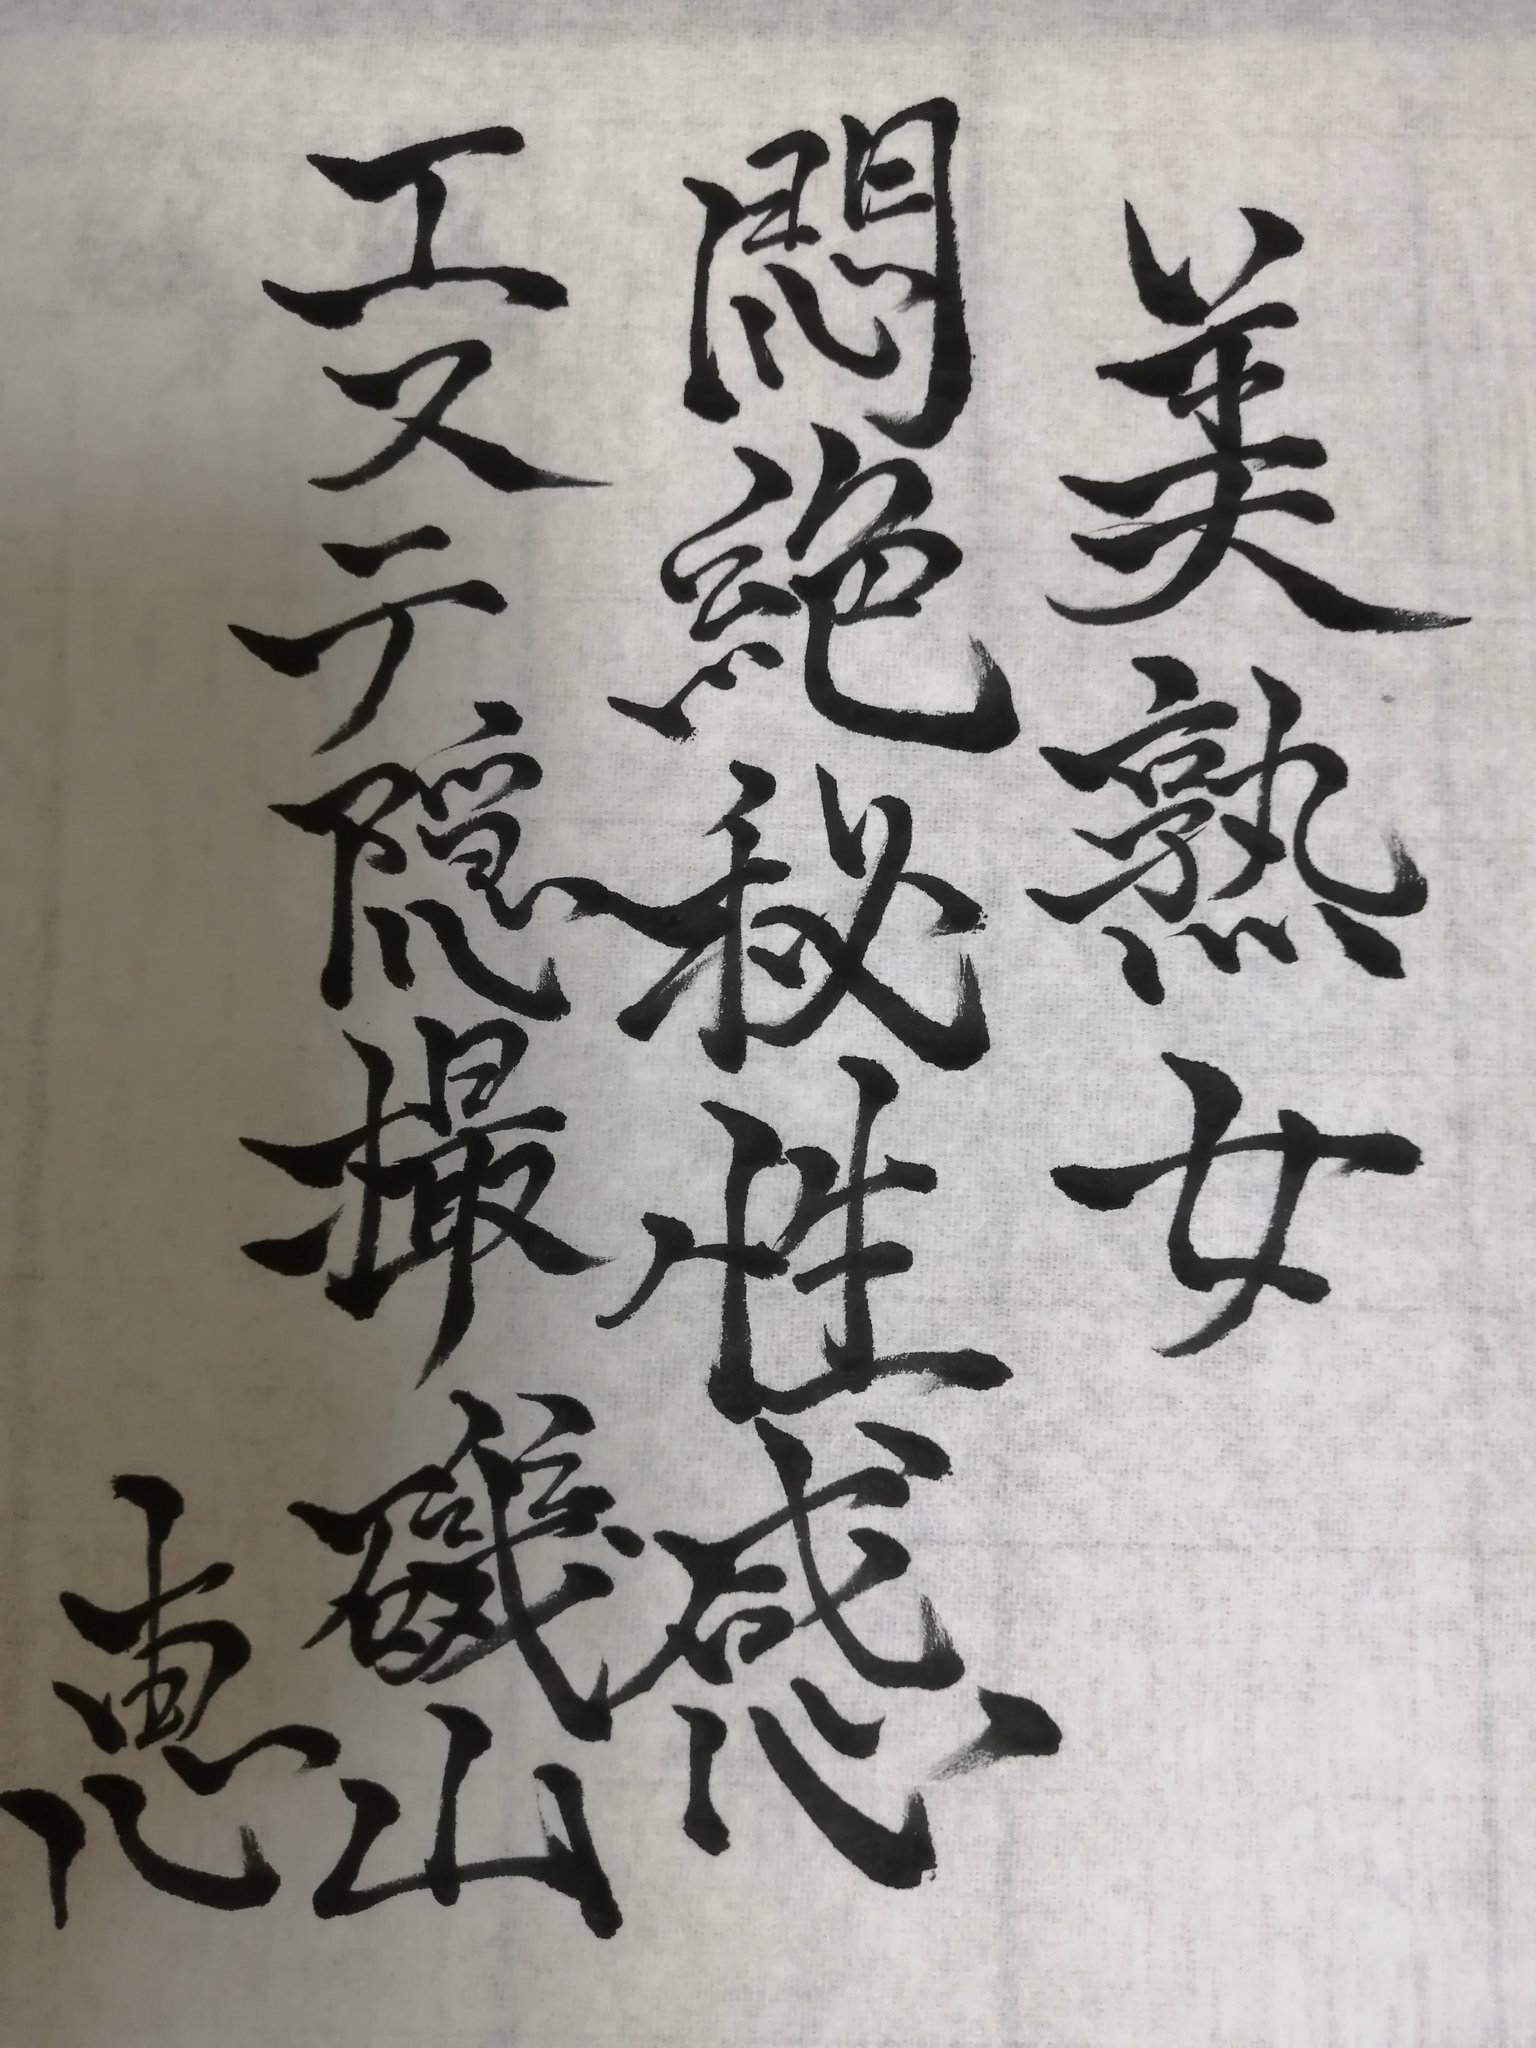 美熟女
悶絶秘性感
エステ隠撮 磯山
恵